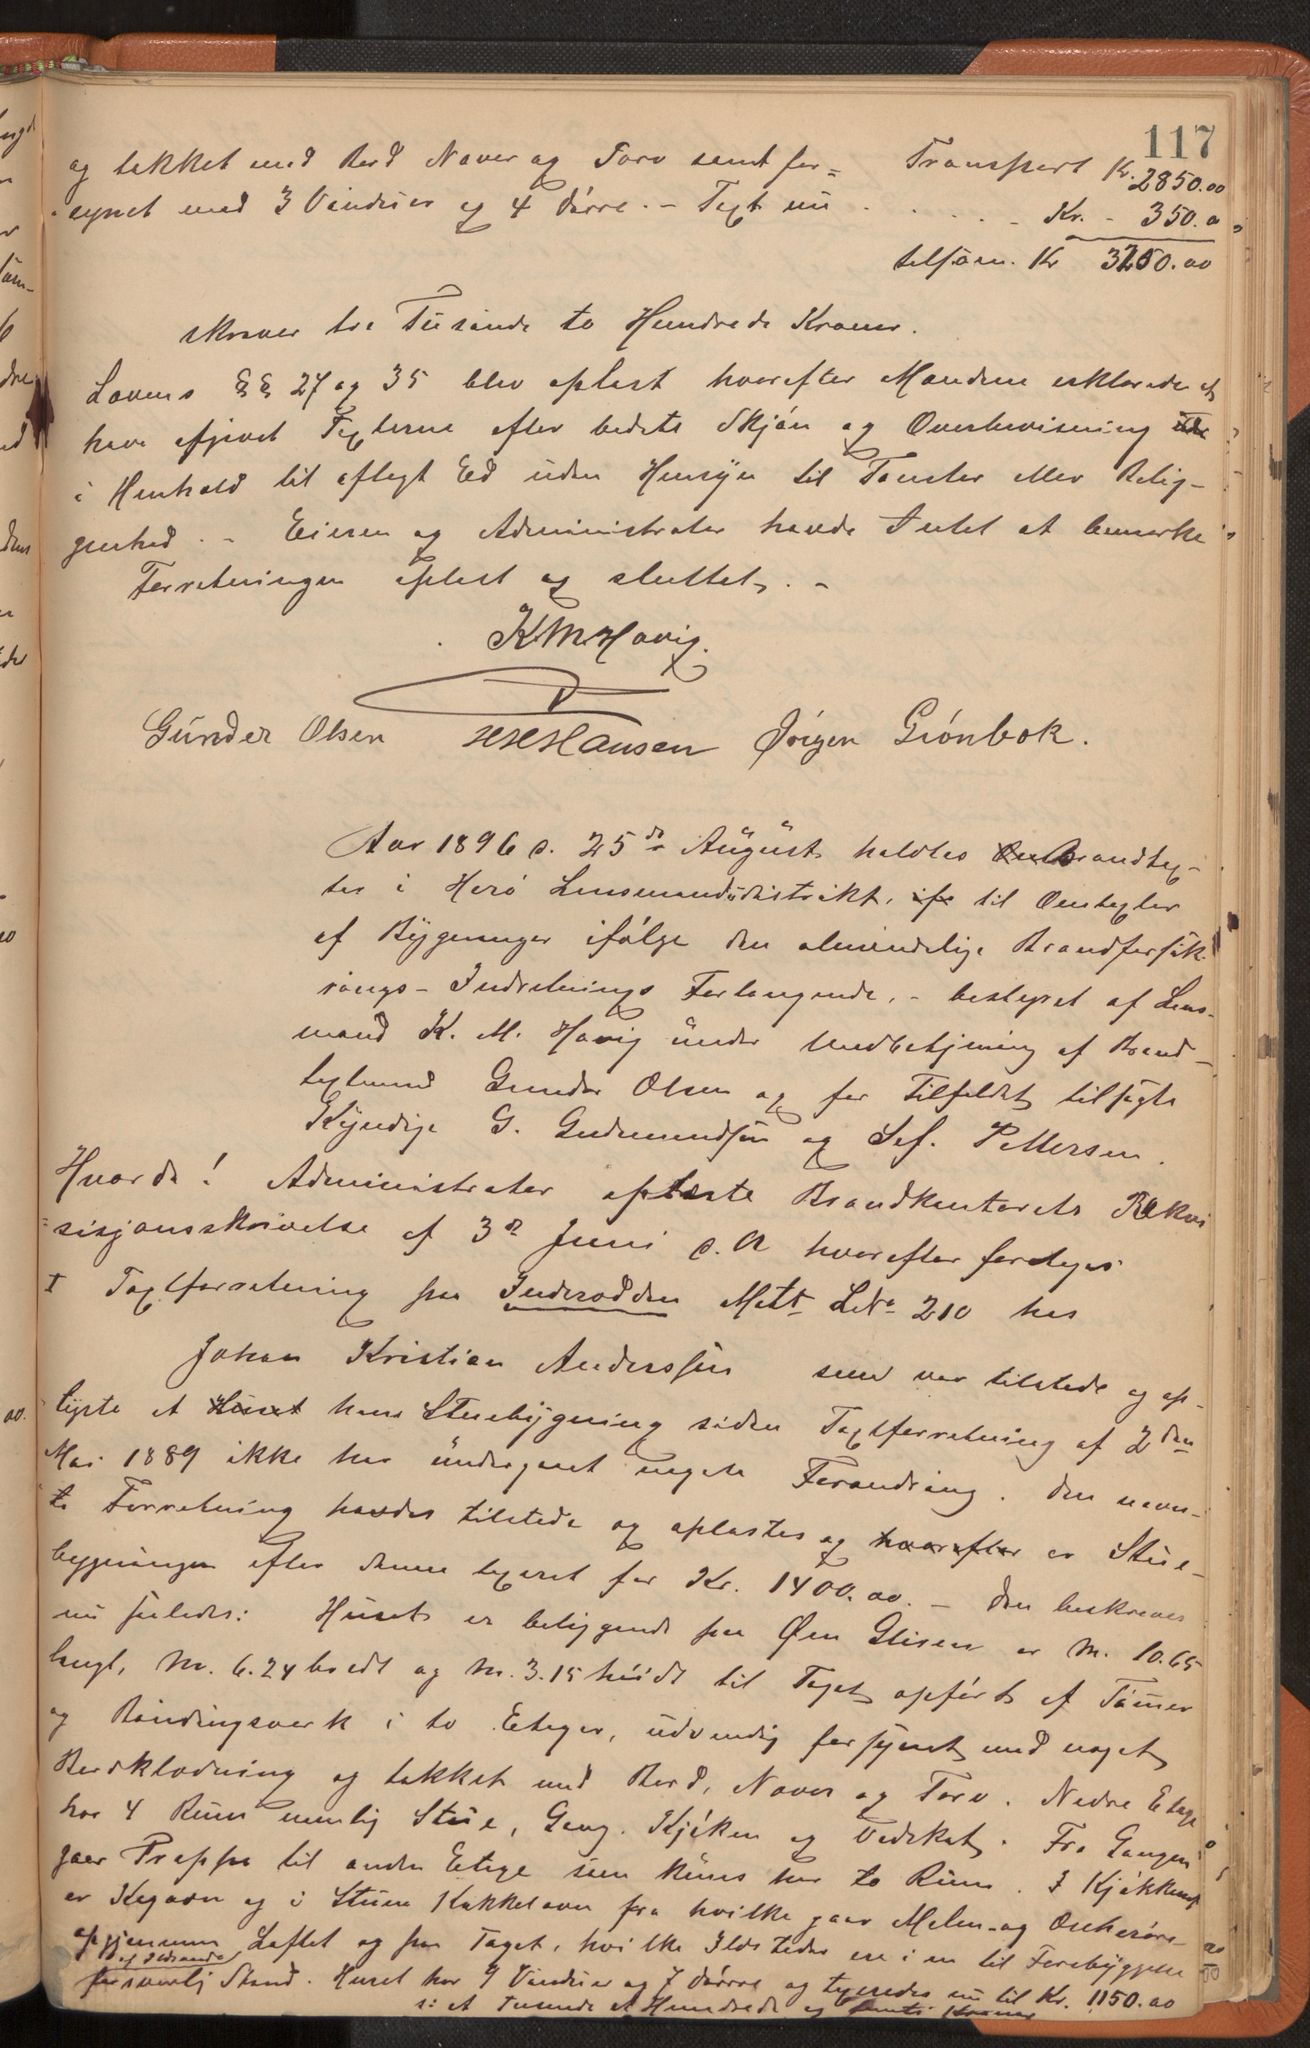 117
og tekket med Bord Never og Torv samt for= Transport Kr. 2850.00
synet med 3 Vinduer og 4 dörre. - Taxt nu . . . . - Kr. - 350.00
tilsam. Kr 3200.00
skriver tre Tusinde to Hundrede Kroner.
Lovens §§ 27 og 35 blev oplæst hvorefter Mændene erklærede at
have afgivet Taxterne efter bedste Skjön og Overbevisning
i Henhold til aflagt Ed uden Hensyn til Tomter eller Belig-
genhed. - Eieren og Administrator havde Intet at bemærke
Forretningen oplæst og sluttet. -
K M Havig.
Gunder Olsen H H Hansen Jörgen Grönbok.
Aar 1896 d. 25de August holdtes Brandtax-
ter i Herö Lensmandsdistrikt, til Omtaxter
af Bygninger ifölge den almindelige Brandforsik-
rings-Indretnings Forlangende, - bestyret af Lens-
mand K. M. Havig under Medbetjening af Brand-
taxtmand Gunder Olsen og for Tilfeldet tilsagte
Kyndige G. Gudmundsen og Sef. Pettersen.
Hvorda! Administrator oplæste Brandkontorets Rekvi
=sisjonsskrivelse af 3de Juni d. A hvorefter foretoges
I Taxtforretning paa Inderodden Matr. LNo 210 hos
Johan Kristian Anderssen som var tilstede og op-
lyste at Huset hans Stuebygning siden Taxtforretning af 2den
Mai 1889 ikke har undergaaet nogen Forandring. Den nevn-
te Forretning havdes tilstede og oplæstes og hvorefter er Stue-
bygningen efter denne taxeret for Kr. 1400.00. - Den beskrives
nu saaledes: Huset er beliggende paa Øen Glisen er M. 10.65
langt, M. 6.24 bredt og M. 3.15 höidt til Taget opfört af Tömer
og Bindingsverk i to Etager, udvendig forsynet med noget
Bordklædning og tækket med Bord, Never og Torv. Nedre Etage
har 4 Rum nemlig Stue, Gang, Kjöken og Vedskot. Fra Gangen
gaar Trappe til anden Etage som kuns har to Rum. I Kjökkenet
er Kogovn og i Stuen Kakkelovn fra hvilke gaar Melem- og Ovnsröre
opgjennem Loftet og paa Taget, hvilke Ildsteder ere i en til Forebyggelse
af Ildsvaade
forsvarlig Stand. Huset har 9 Vinduer og 7 dörre og taxeredes nu til Kr. 1150.00
s: et Tusinde et Hundrede og femti Kroner